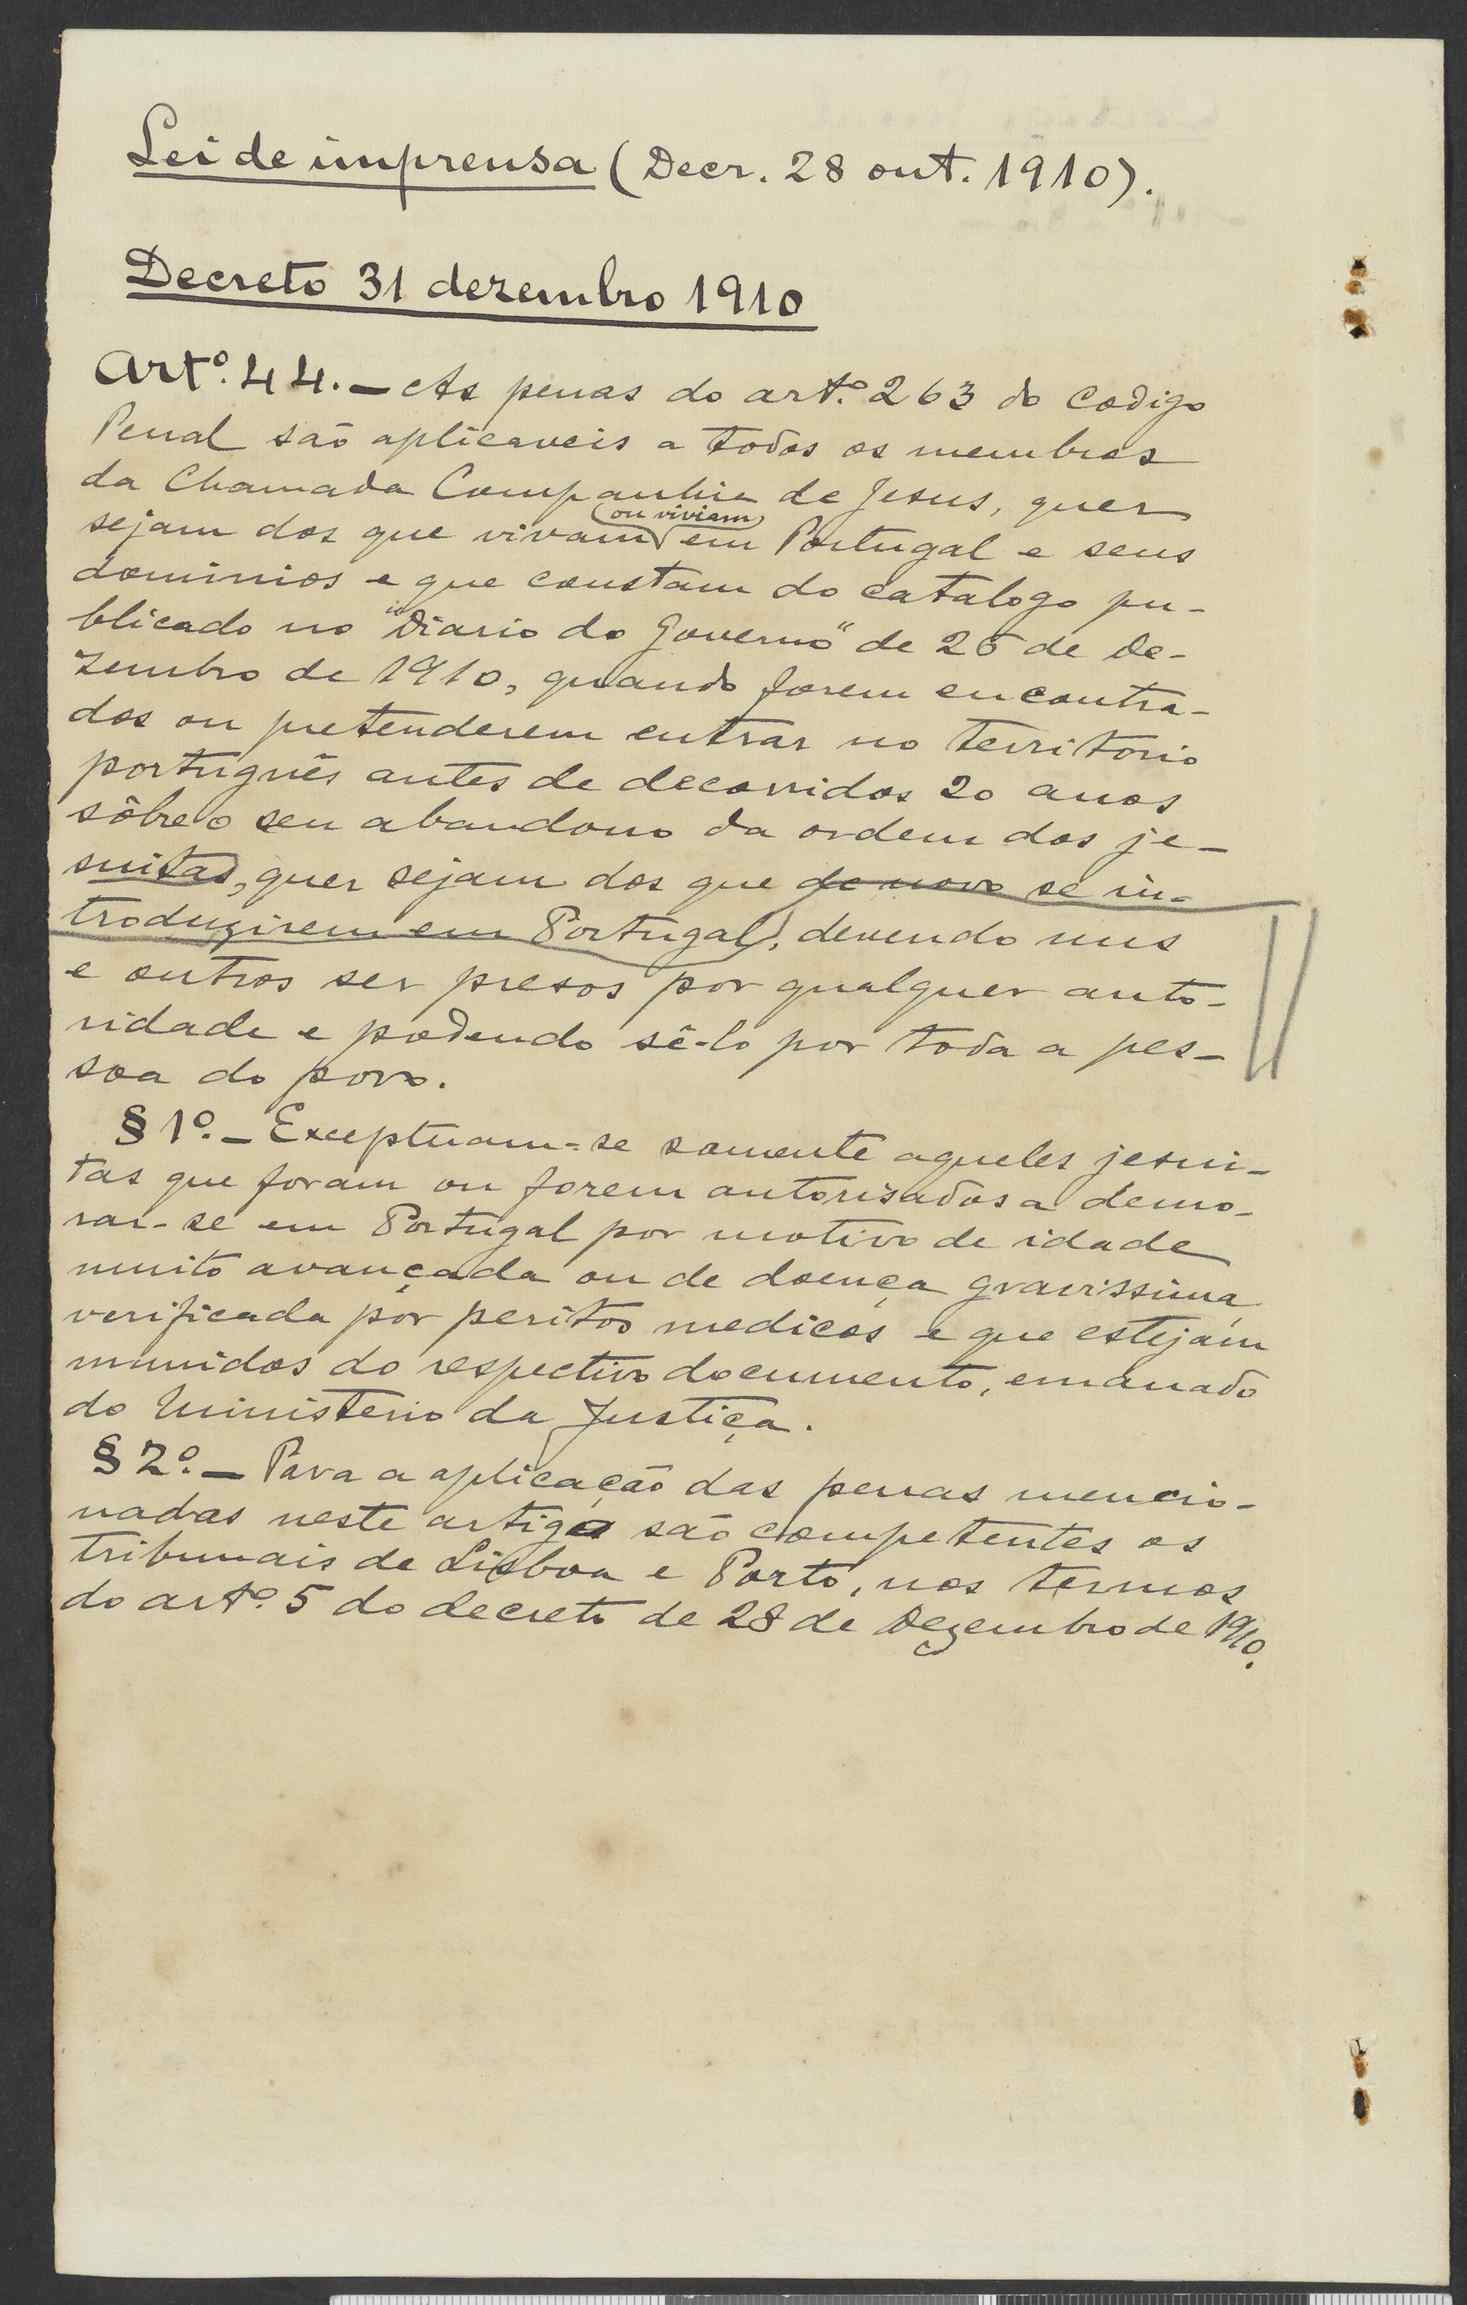 Lei de imprensa (Decr. 28 out. 1910).
Decreto 31 dezembro 1910
Artº. 44. — As penas do artº. 263 do Codigo
Penal são aplicaveis a todos os membros
da Chamada Companhia de Jesus, quer
(ou viviam)
sejam dos que vivam em Portugal e seus
dominios e que constam do catalogo pu-
blicado no "Diario do Governo" de 26 de De-
zembro de 1910, quando forem encontra-
dos ou pretenderem entrar no territorio
português antes de decorridos 20 anos
sôbre o seu abandono da ordem dos je-
suitas, quer sejam dos que de novo se in-
troduzirem em Portugal, devendo uns
e outros ser presos por qualquer auto-
ridade e podendo sê-lo por toda a pes-
soa do povo.
§ 1º. — Exceptuam-se somente aqueles jesui-
tas que foram ou forem autorisados a demo-
rar-se em Portugal por motivo de idade
muito avançada ou de doença gravissima
verificada por peritos medicos e que estejam
munidos do respectivo documento, emanado
do Ministerio da Justiça.
§ 2º. — Para a aplicação das penas mencio-
nadas neste artigo são competentes os
tribunais de Lisboa e Porto, nos termos
do artº. 5 do decreto de 28 de Dezembro de 1910.